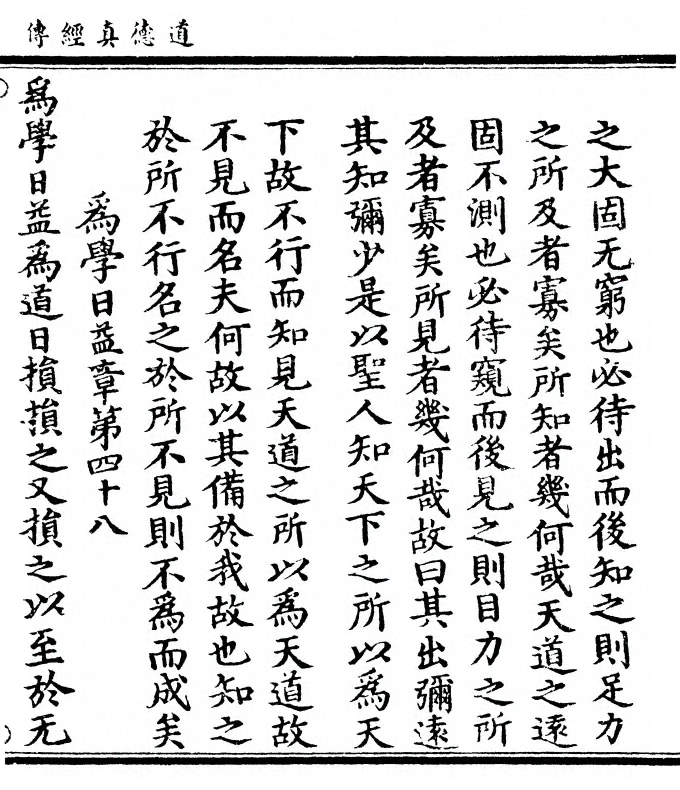 道德真經傳
之大固无窮也必待出而後知之則足力
之所及者寡矣所知者幾何哉天道之遠
固不測也必待窺而後見之則目力之所
及者寡矣所見者幾何哉故曰其出彌遠
其知彌少是以聖人知天下之所以為天
下故不行而知見天道之所以為天道故
不見而名夫何故以其備於我故也知之
於所不行名之於所不見則不為而成矣
為學日益章第四十八
為學日益為道日損損之又損之以至於无